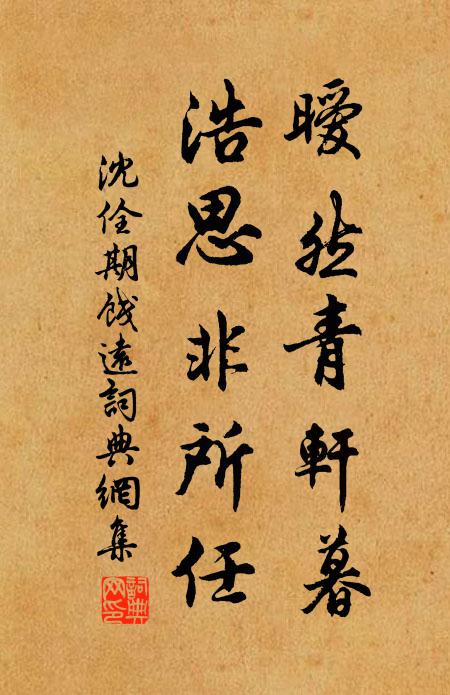 曖然青軒暮
浩思非所任
沈佺期餞遠詞典網集
詞典網印